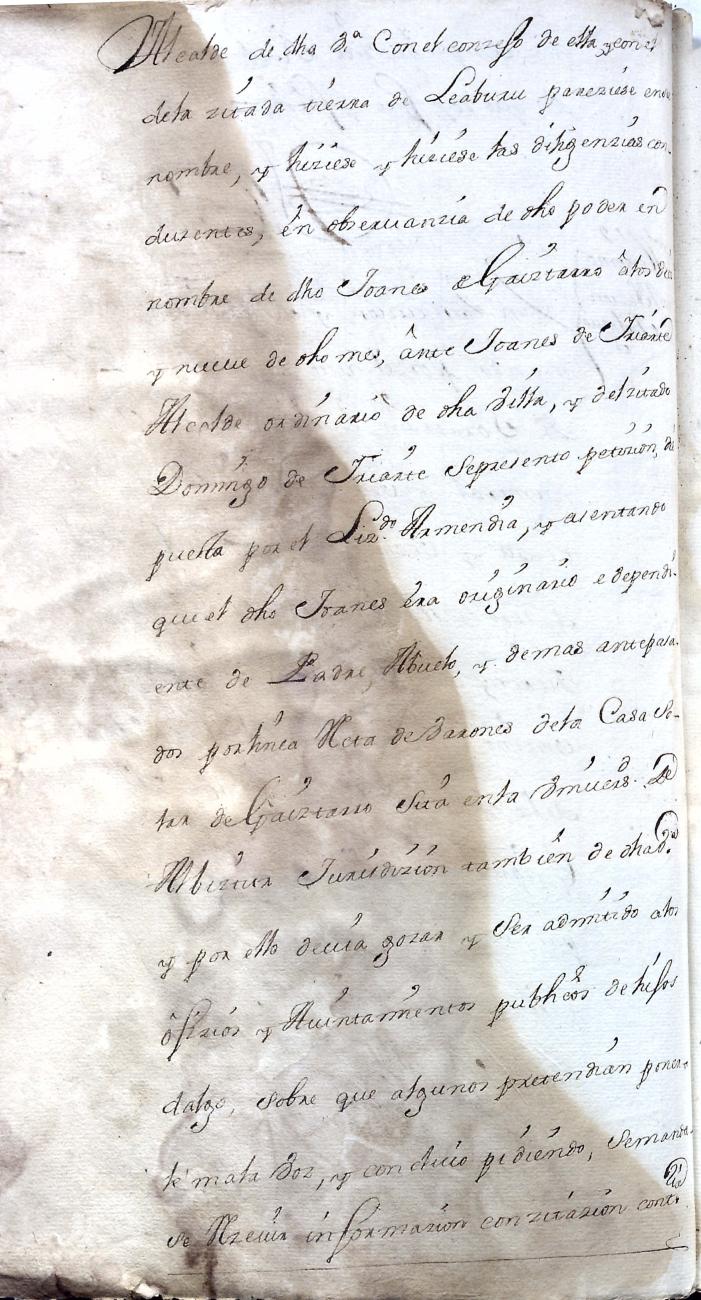 Alcalde de dha Vª Con el conzejo de ella, y con el
dela zitada tierra de Leaburu pareziese en su
nombre, y hiziese y hiziese las diligenzias con-
duzentes, en obseruanzia de dho poder en
nombre de dho Joanes de Gaiztarro â los diez
y nueue de dho mes, ânte Joanes de Iriarte
Alcalde ordinario de dha Villa, y del zitado
Domingo de Iriarte Sepresento petizion, dis
puesta por el Lizdo. Armendia, y asentando
que el dho Joanes era originario e dependi-
ente de Padre, Abuelo, y demas antepasa-
dos por linea Recta de Varones dela Casa So-
lar de Gaiztarro Sita en la Vniuersd. de
Albiztur Jurisdizion tambien de dha Vª.
y por ello deuia gozar y Ser admitido alos
ôfizios y Aiuntamientos publicos de hijos
dalgo, sobre que algunos pretendian poner-
le mala Voz, y concluio pidiendo, Semanda-
se Rzeuir informazion con zitazion contª.